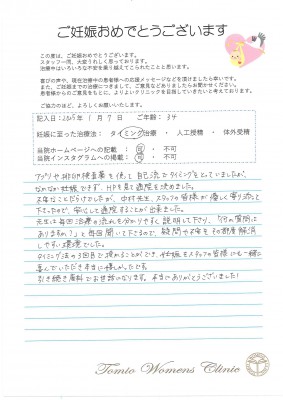 ご妊娠おめでとうございます
この度は、ご妊娠おめでとうございます。
スタッフ一同、大変うれしく思っております。
治療中はいろいろな不安を乗り越えてこられたことと思います。
喜びの声や、現在治療中の患者様への応援メッセージなどを頂けましたら幸いです。
また、ご妊娠までの治療につきまして、ご意見などありましたらお聞かせください。
患者様からのご意見をもとに、よりよいクリニックを目指していきたいと考えております。
ご協力のほど、よろしくお願いいたします。
記入日:2025年 1月 7日 ご年齢: 34
妊娠に至った治療法: タイミング治療 ・ 人工授精 ・ 体外受精
当院ホームページへの記載: 可 ・ 不可
当院インスタグラムへの掲載: 可 ・ 不可
アプリや排卵検査薬を使って自己流でタイミングをとっていましたが、
なかなか妊娠できず、HPを見て通院を決めました。
不安なことだらけでしたが、中村先生、スタッフの皆様が優しく寄り添って
下さったので、安心して通院することが出来ました。
先生は毎回治療の流れを分かりやすく説明して下さり、「何か質問は
ありますか?」と毎回聞いて下さるので、疑問や不安をその都度解消
しやすい環境でした。
タイミング法の3回目で授かることができ、妊娠をスタッフの皆様にも一緒に
喜んでいただき本当に嬉しかったです。
引き続き産科でもお世話になります。本当にありがとうございました!
Tomio Womens Clinic